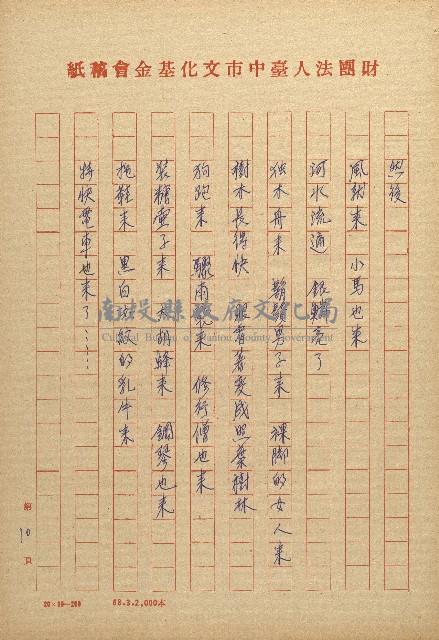 財團法人臺中市文化基金會稿紙
然後
風鈴來　小馬也來
河水流過　銀鱗亮了
独木舟來　鬍鬚男子來　裸脚的女人來
樹木長得快　眼看著変成照葉樹林
狗跑來　驟雨襲來　修行僧也來
裝糖壷子來　大胡蜂來　鋼琴也來
拖鞋來　黑白斑紋的乳牛來
特快電車也來了……
第 10 頁
20×10—200　68.3.2,000本
南投縣政府文化局
Cultural Bureau of Nantou County Government